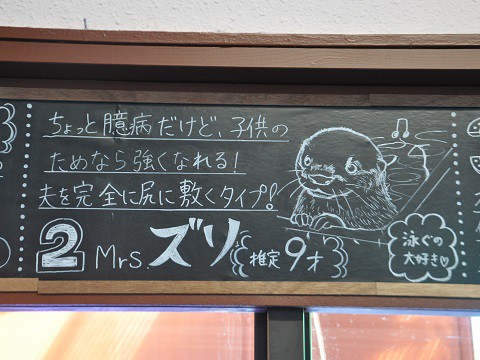 ちょっと臆病だけど、子供の
ためなら強くなれる!
夫を完全に尻に敷くタイプ!!
2 Mrs. ズリ 推定9才
泳ぐの
大好き♡